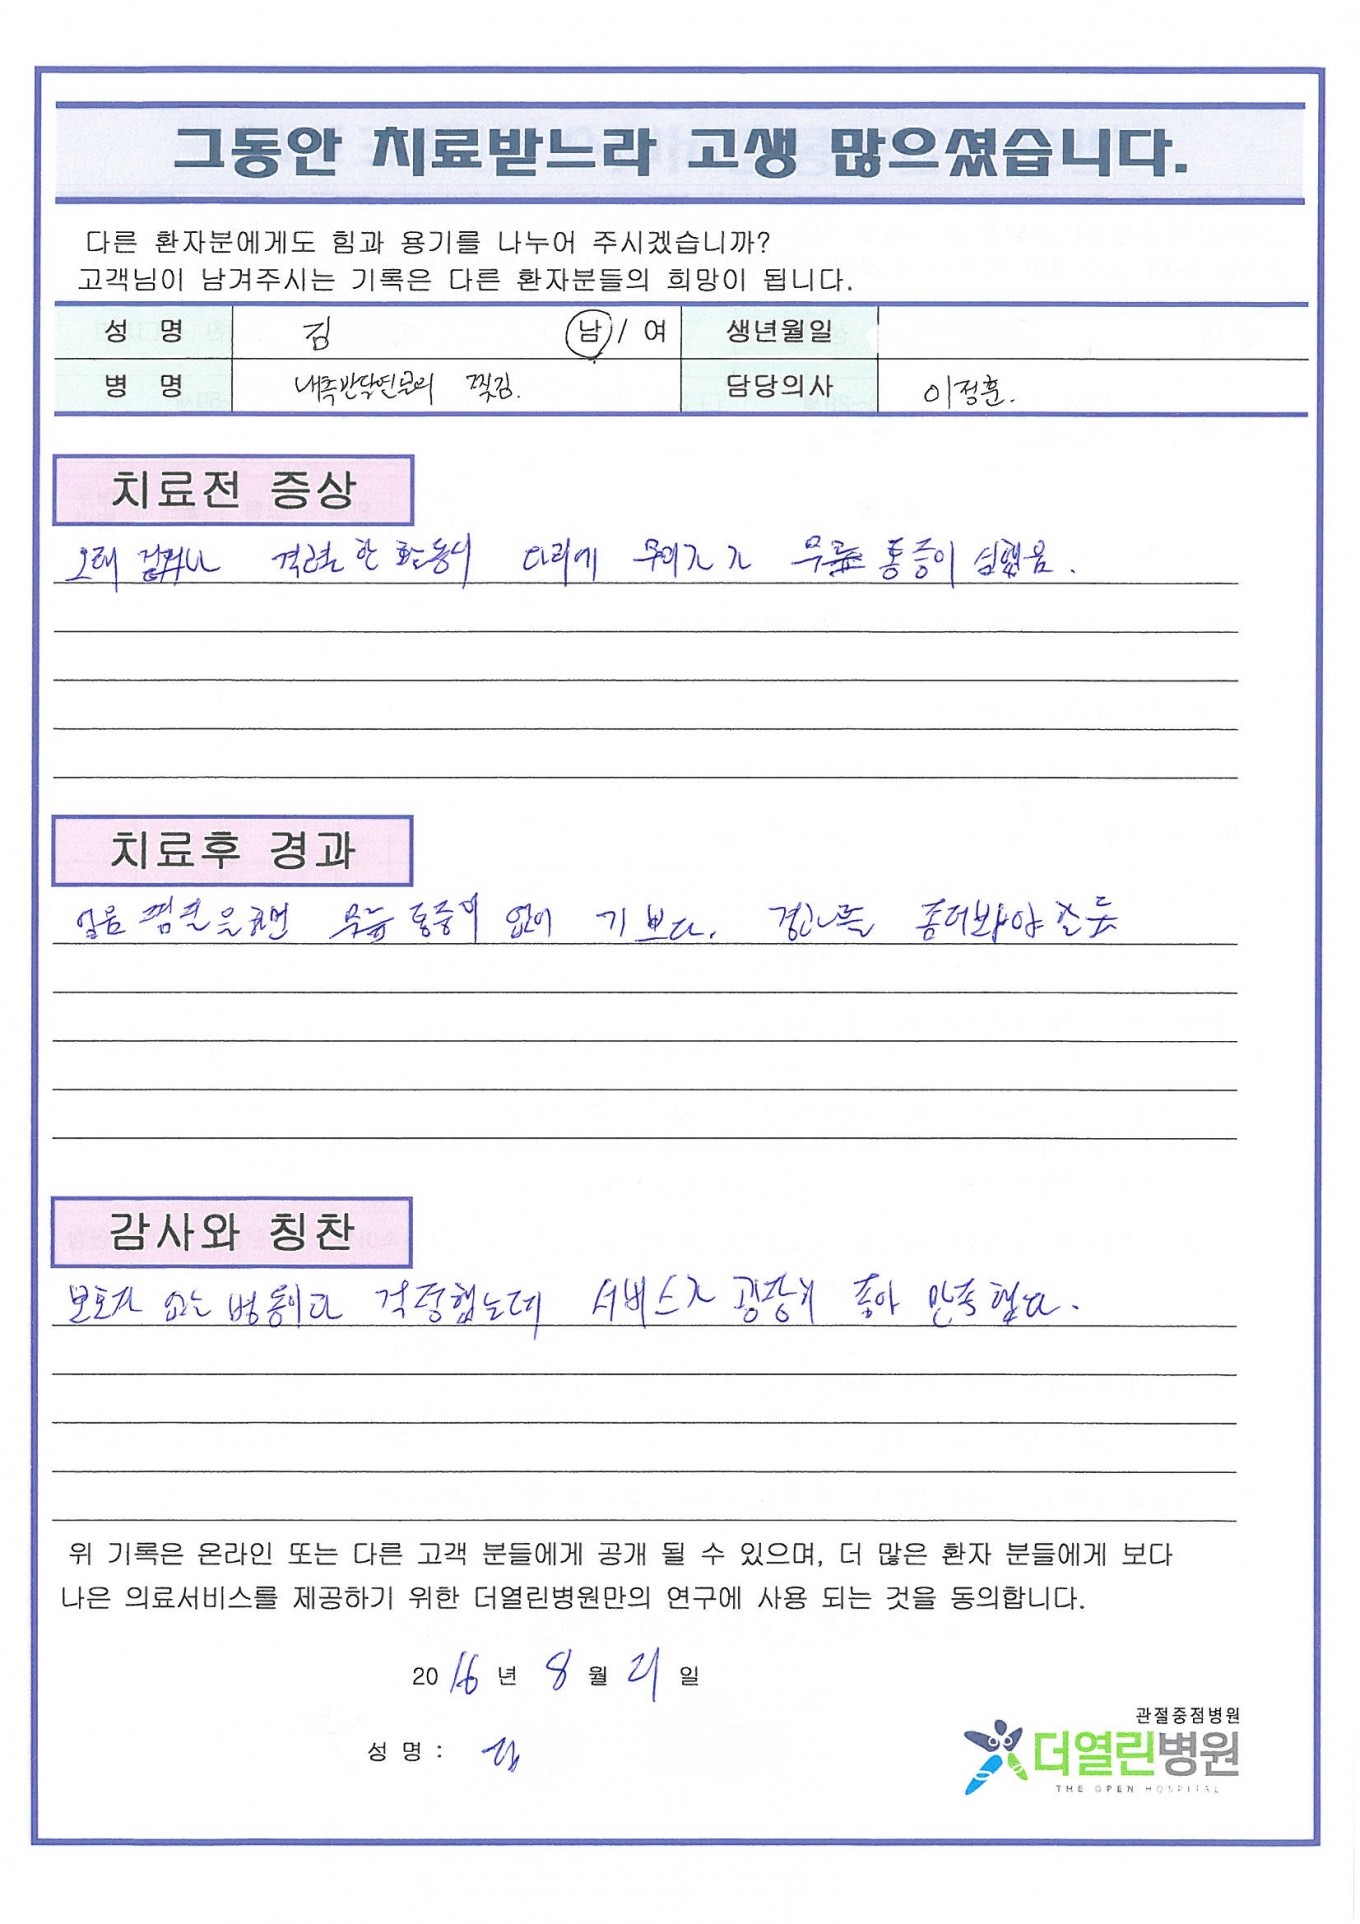 그동안 치료받느라 고생 많으셨습니다.
다른 환자분에게도 힘과 용기를 나누어 주시겠습니까?
고객님이 남겨주시는 기록은 다른 환자분들의 희망이 됩니다.
성 명 김 남 / 여 생년월일
병 명 내측반달연골의 찢김. 담당의사 이정훈.
치료전 증상
오래 걷거나 격렬한 활동시 다리에 무리가 가 무릎 통증이 심했음.
치료후 경과
얼음 찜질을 하면 무릎 통증이 없어 기쁘다. 경과를 좀더봐야 할듯
감사와 칭찬
보호자 없는 병동이라 걱정했는데 서비스가 굉장히 좋아 만족했다.
위 기록은 온라인 또는 다른 고객 분들에게 공개 될 수 있으며, 더 많은 환자 분들에게 보다
나은 의료서비스를 제공하기 위한 더열린병원만의 연구에 사용 되는 것을 동의합니다.
2016 년 8 월 21 일
관절중점병원
성 명 : 김
더열린병원
THE OPEN HOSPITAL